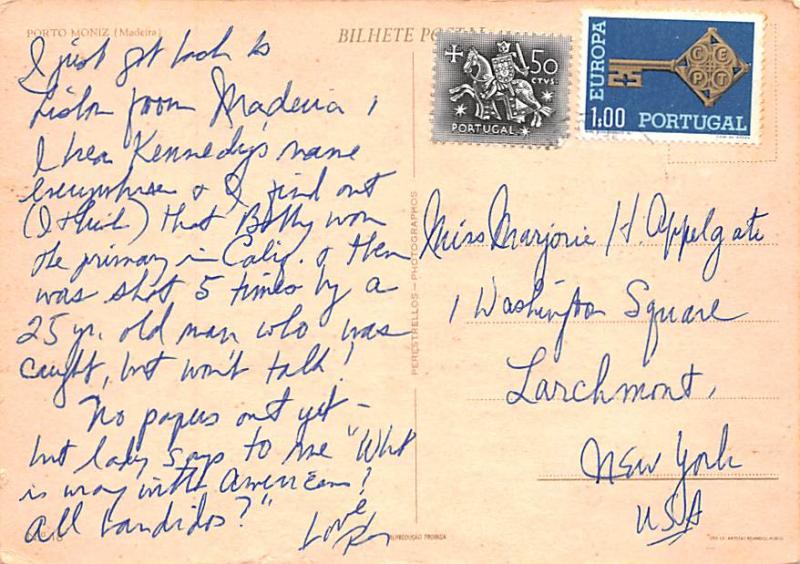 PORTO MONIZ (Madeira)
BILHETE POSTAL
I just got back to
Lisbon from Madeira,
I hear Kennedy's name
everywhere & I find out
(I think) that Bobby won
the primary in Calif. & then
was shot 5 times by a
25 yr. old man who was
caught, but won't talk!
No papers out yet –
but lady says to me "What
is wrong with Americans?
All bandidos?"
Love
50
CTVS.
PORTUGAL
EUROPA
CEPT
1$00 PORTUGAL
Miss Marjorie H. Appelgate
1 Washington Square
Larchmont,
New York
USA
PERESTRELLOS—PHOTOGRAPHOS
REPRODUÇÃO PROIBIDA